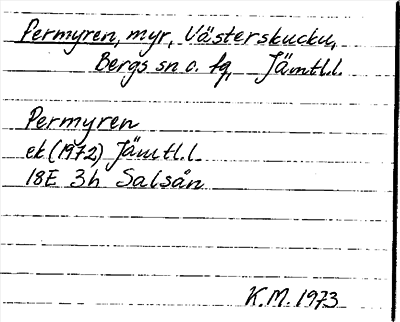 Permyren, myr, Västerskucku,
Bergs sn o. fg, Jämtl.l.
Permyren
ek (1972) Jämtl.l
18E 3h Salsån
K.M. 1973